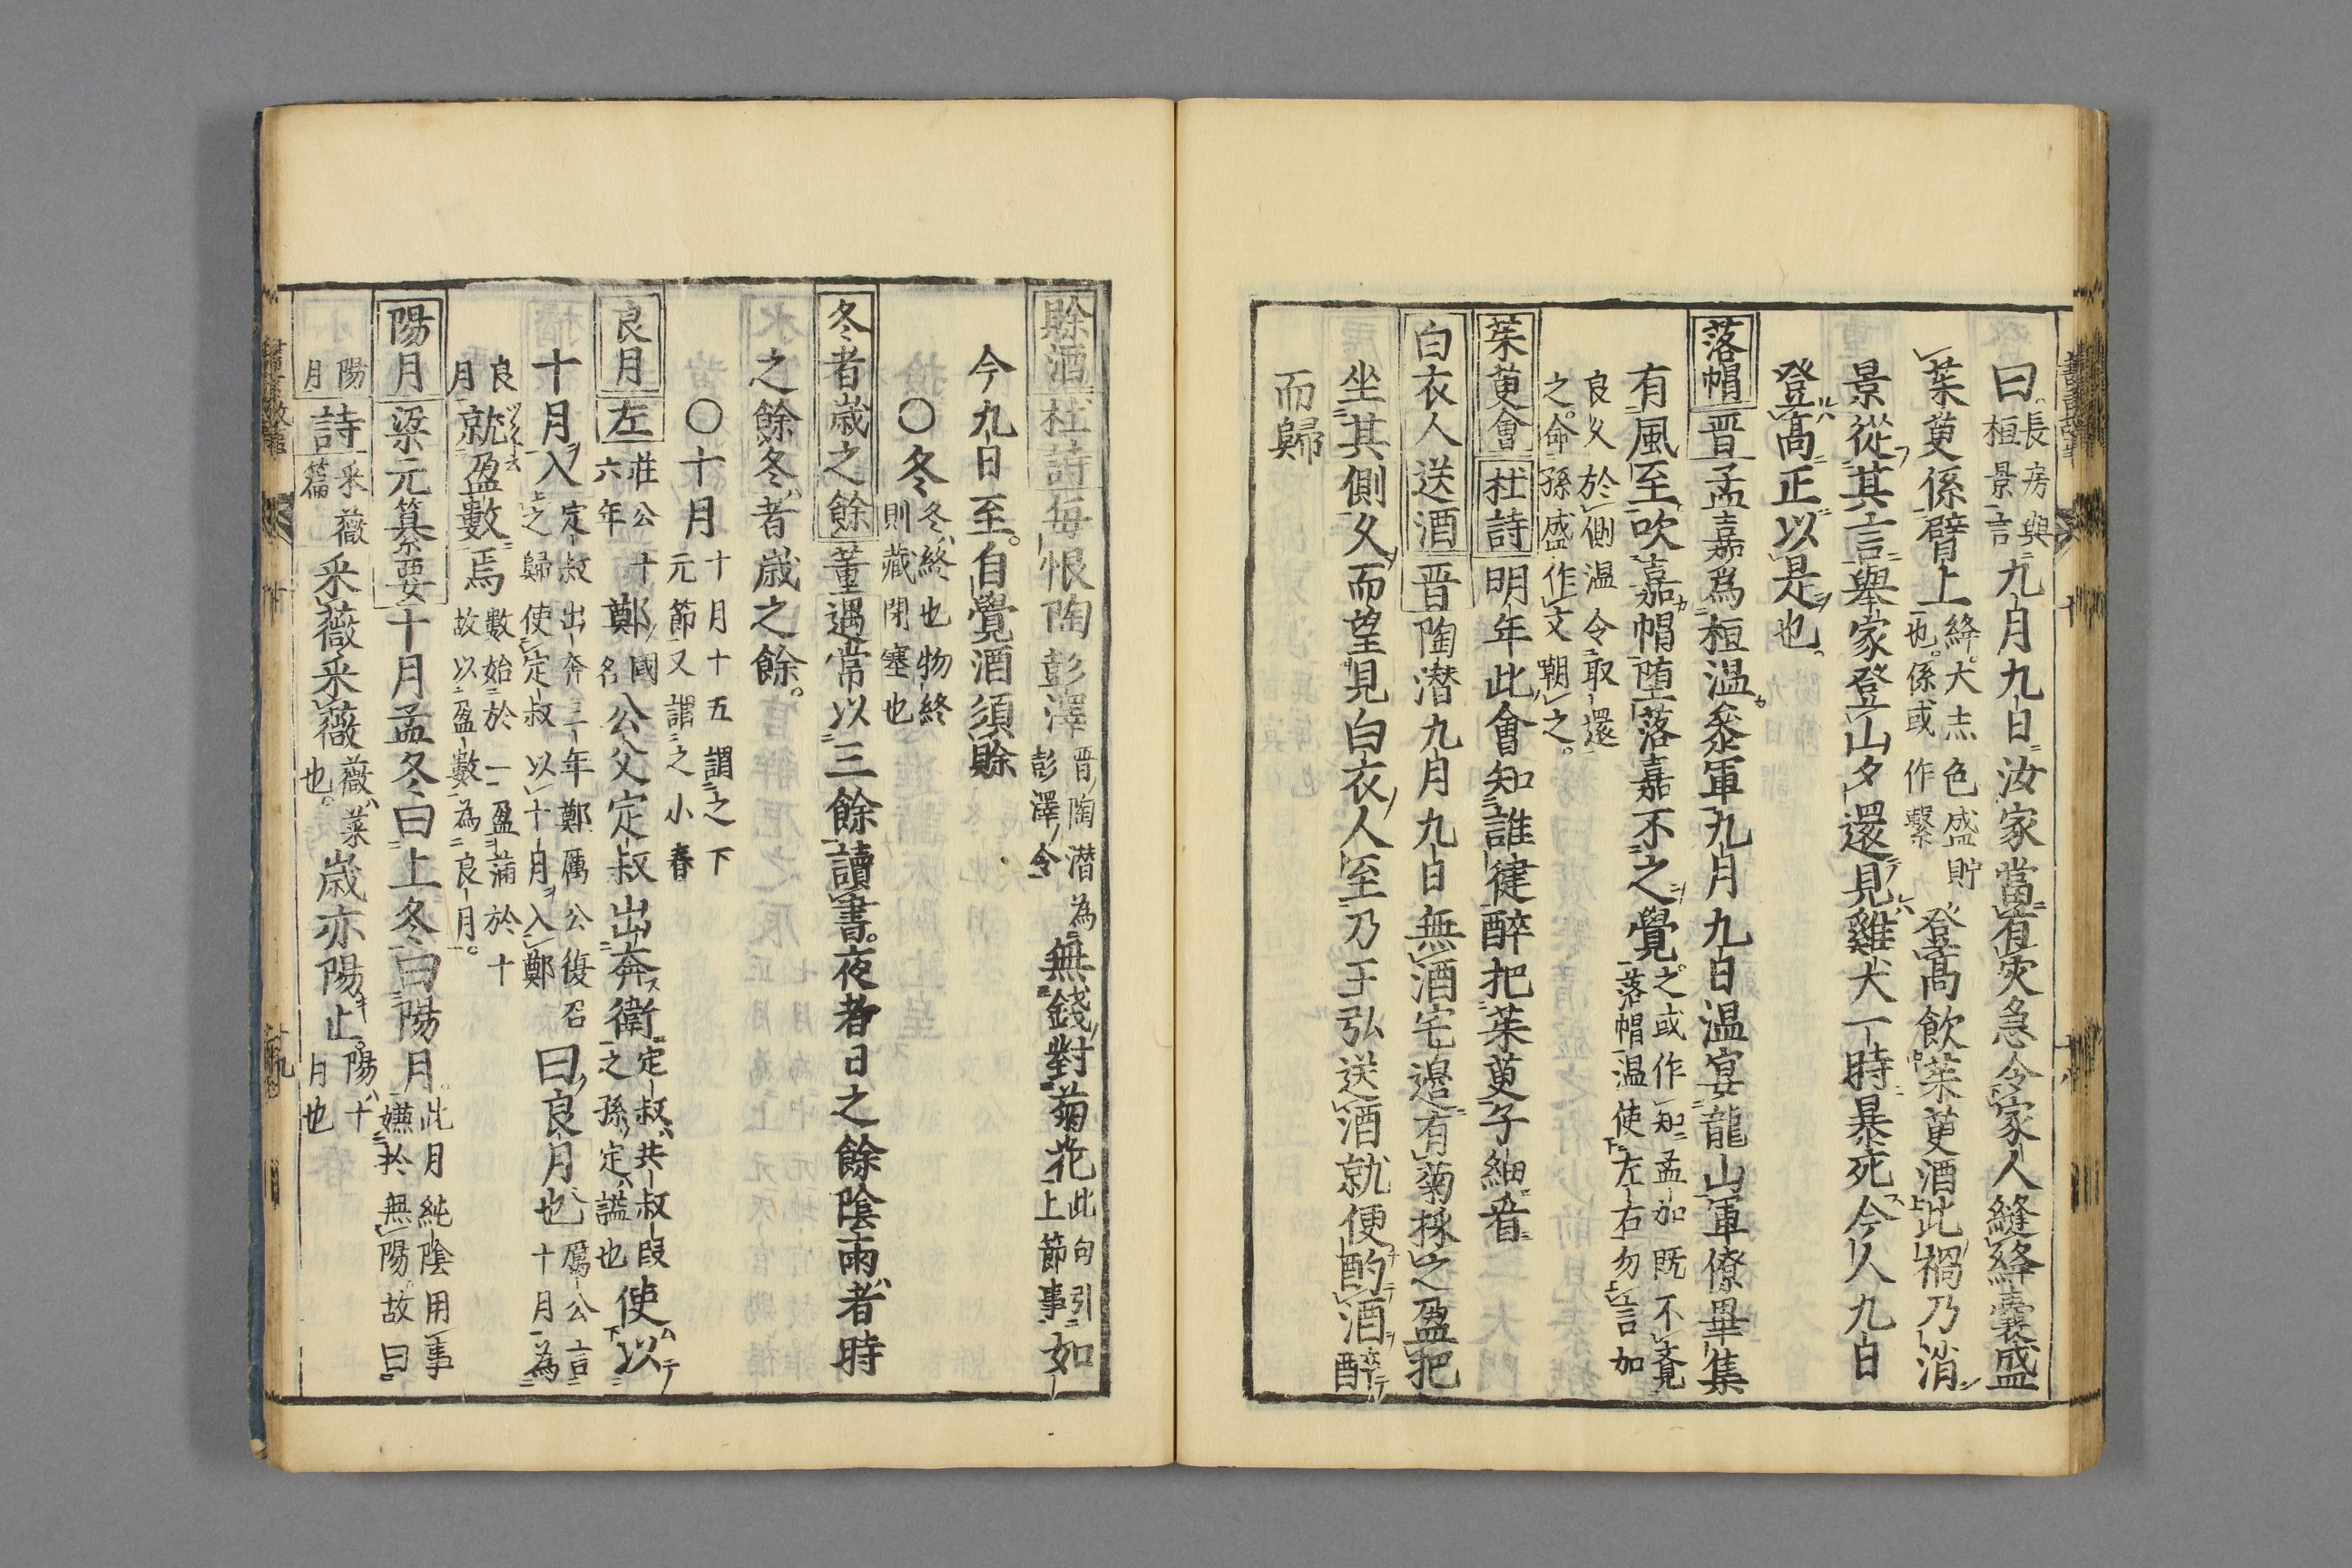 曰長房與桓景言九月九日汝家當有灾急令家人縫絳囊盛
茱萸係臂上絳大赤色盛貯也係或作繫登高飲茱萸酒此禍乃消
景從其言舉家登山夕還見雞犬一時暴死今人九日
登高正以是也
落帽晋孟嘉爲桓温叅軍九月九日温宴龍山軍僚畢集
有風至吹嘉帽墮落嘉不之覺之或作知孟加既不覚落帽温使左右勿言加
良久於側温令取還之命孫盛作文嘲之
茱萸會杜詩明年此會知誰健醉把茱萸子細看
白衣人送酒晋陶潜九月九日無酒宅邉有菊採之盈把
坐其側久而望見白衣人至乃王弘送酒就便酌酒醉
而歸
賖酒杜詩每恨陶彭澤晋陶潜為彭澤令無錢對菊花此句引上節事如
今九日至自覺酒須賖
〇冬冬終也物終則藏閉塞也
冬者歳之餘董遇常以三餘讀書夜者日之餘陰雨者時
之餘冬者歳之餘
〇十月十月十五謂之下元節又謂之小春
良月左莊公十六年鄭國名公父定叔出奔衛定叔共叔段之孫定謚也使以
十月入定叔出奔三年鄭厲公復召之歸使定叔以十月入鄭曰良月也厲公言十月為
良月就盈數焉數始於一盈滿於十故以盈數為良月
陽月梁元纂要十月孟冬曰上冬曰陽月此月純陰用事嫌於無陽故曰
陽月詩采薇篇采薇采薇薇菜也歳亦陽止陽十月也